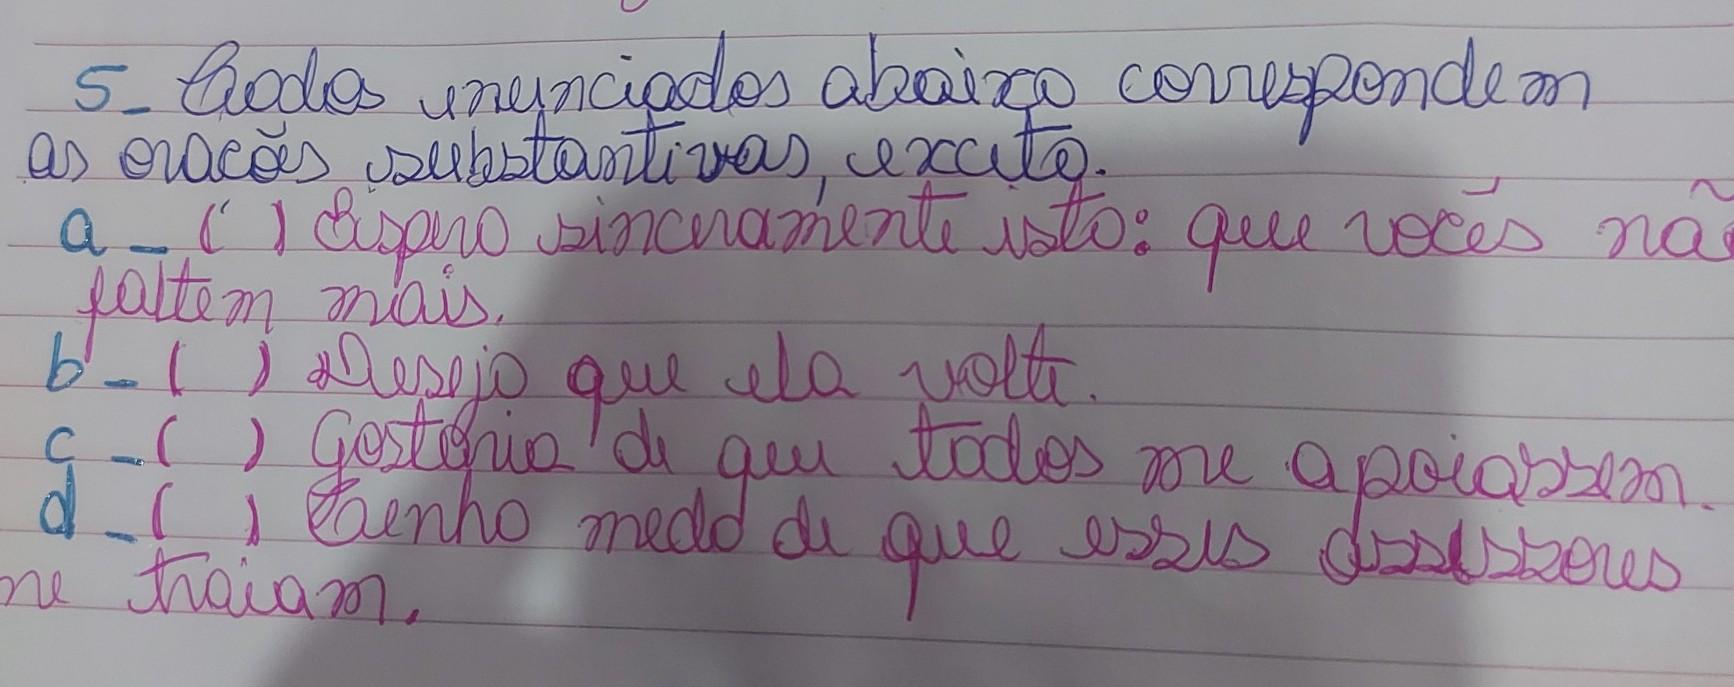 5- Todos enunciados abaixo correspondem
as oracões substantivas, exceto.
a - ( ) Espero sinceramente isto: que vocês não
faltem mais.
b - ( ) Desejo que ela volte.
c - ( ) Gostária de que todos me apoiassem.
d - ( ) Tenho medo de que esses assessores
me traiam.